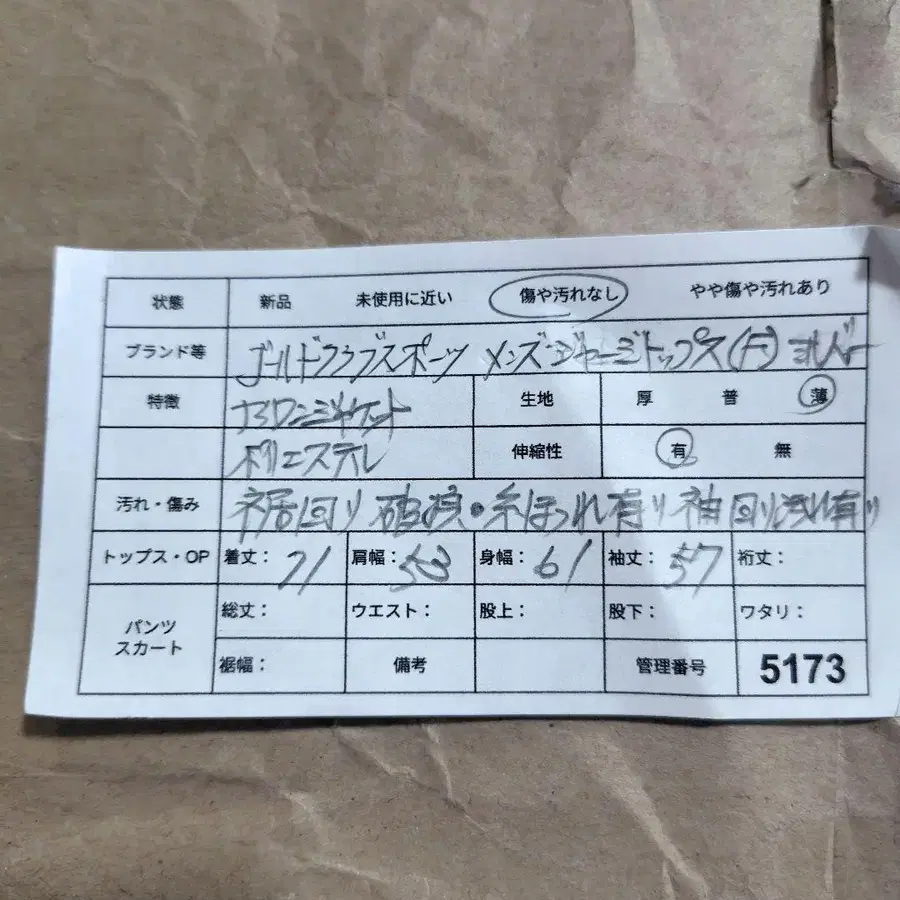 状態 新品 未使用に近い 傷や汚れなし やや傷や汚れあり
ブランド等 ゴールドクラブスポーツ メンズジャージトップス(F)シルバー
特徴 ナイロンジャケット 生地 厚 普 薄
ポリエステル 伸縮性 有 無
汚れ・傷み 裾回り 破損・糸ほつれ有り 袖回り 有り
トップス・OP 着丈: 71 肩幅: 53 身幅: 61 袖丈: 57 裄丈:
パンツ スカート 総丈: ウエスト: 股上: 股下: ワタリ:
裾幅: 備考 管理番号 5173